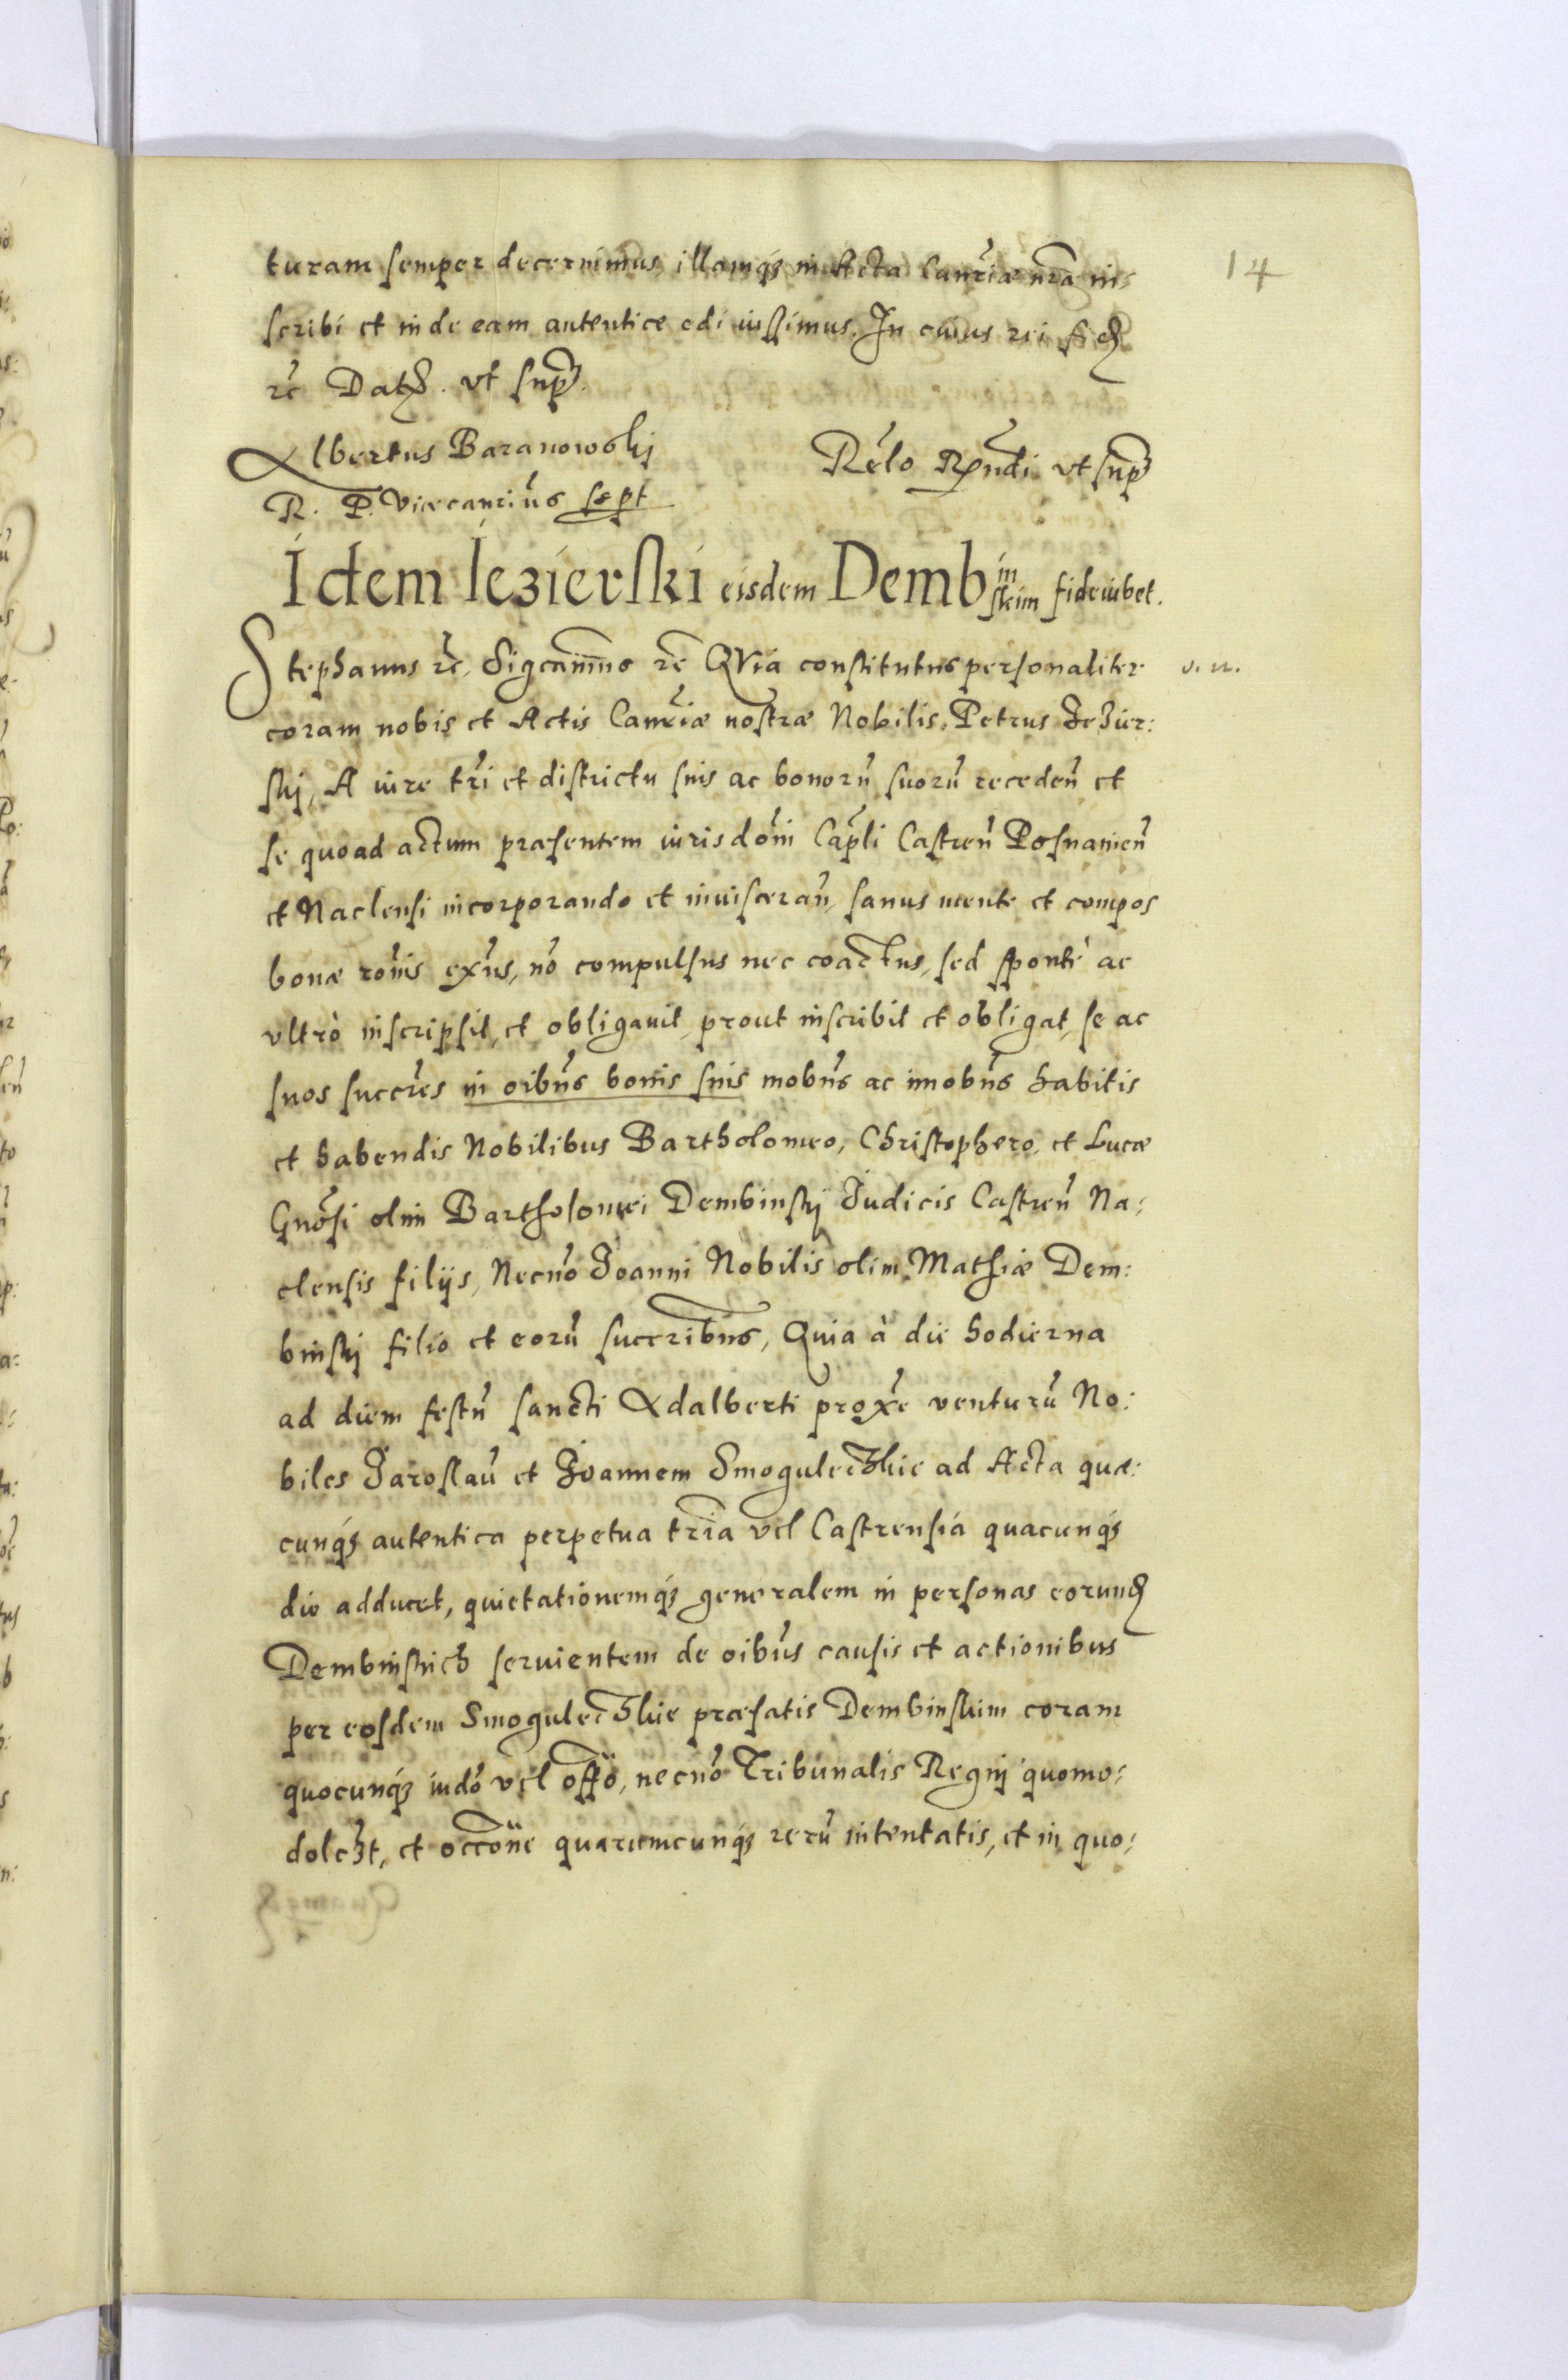 14
turam semper decernimus, illamq́ꝫ in Acta Canc̃riæ nrã in:
scribi et inde eam autentice edi iussimus. In cuius rei fidꝫ
rč Datꝫ. vt supꝫ.
Albertus Baranowskj
R. P. Vicecanc̃riũs sspt
Rélo Rx̃ndi vt supꝫ
Idem Iezierski eisdem Dembinskim fideiubet.
Stephanus rč, Sigcam̃ms rč QVia constitutus personaliter
v. u.
coram nobis et Actis Canc̃riæ nostræ Nobilis. Petrus Jezier:
skj, A iure tr̃i et districtu suis ac bonorũ suorũ recedeñ et
se quoad actum præsentem iurisdõni Cap̃li Castreñ Posnanieñ
et Naclensi incorporando et inuisceran̄, sanus mente et compos
bonæ rõnis ex̃ns, nõ compulsus nec coactus, sed spontè ac
vltrò inscripsit, et obligauit, prout inscribit et obligat, se ac
suos succr̃es in oibũs bonis suis mobñs ac imobñs habitis
et habendis Nobilibus Bartholomeo, Christophero, et Lucæ
Gnõsi olim Bartholomei Dembinskj Judicis Castreñ Na:
clensis filijs, Necnõ Joanni Nobilis olim Mathiæ Dem:
binskj filio et eorũ succribus, Quia à die hodierna
ad diem festũ sancti Adalberti prox̃e venturũ No:
biles Jaroslaũ et Joannem Smoguleczkie ad Acta quæ:
cunq́ꝫ autentica perpetua tr̃ia vel Castrensia quacunq́ꝫ
die adducet, quietationemq́ꝫ generalem in personas eorundꝫ
Dembinskich seruientem de oibũs causis et actionibus
per eosdem Smoguleczkie præfatis Dembinskim coram
quocunq́ꝫ iudõ vel offõ, necnõ Tribunalis Regnj quomo:
dolꝫt, et occõne quarumcunq́ꝫ rerũ intentatis, et in quo: